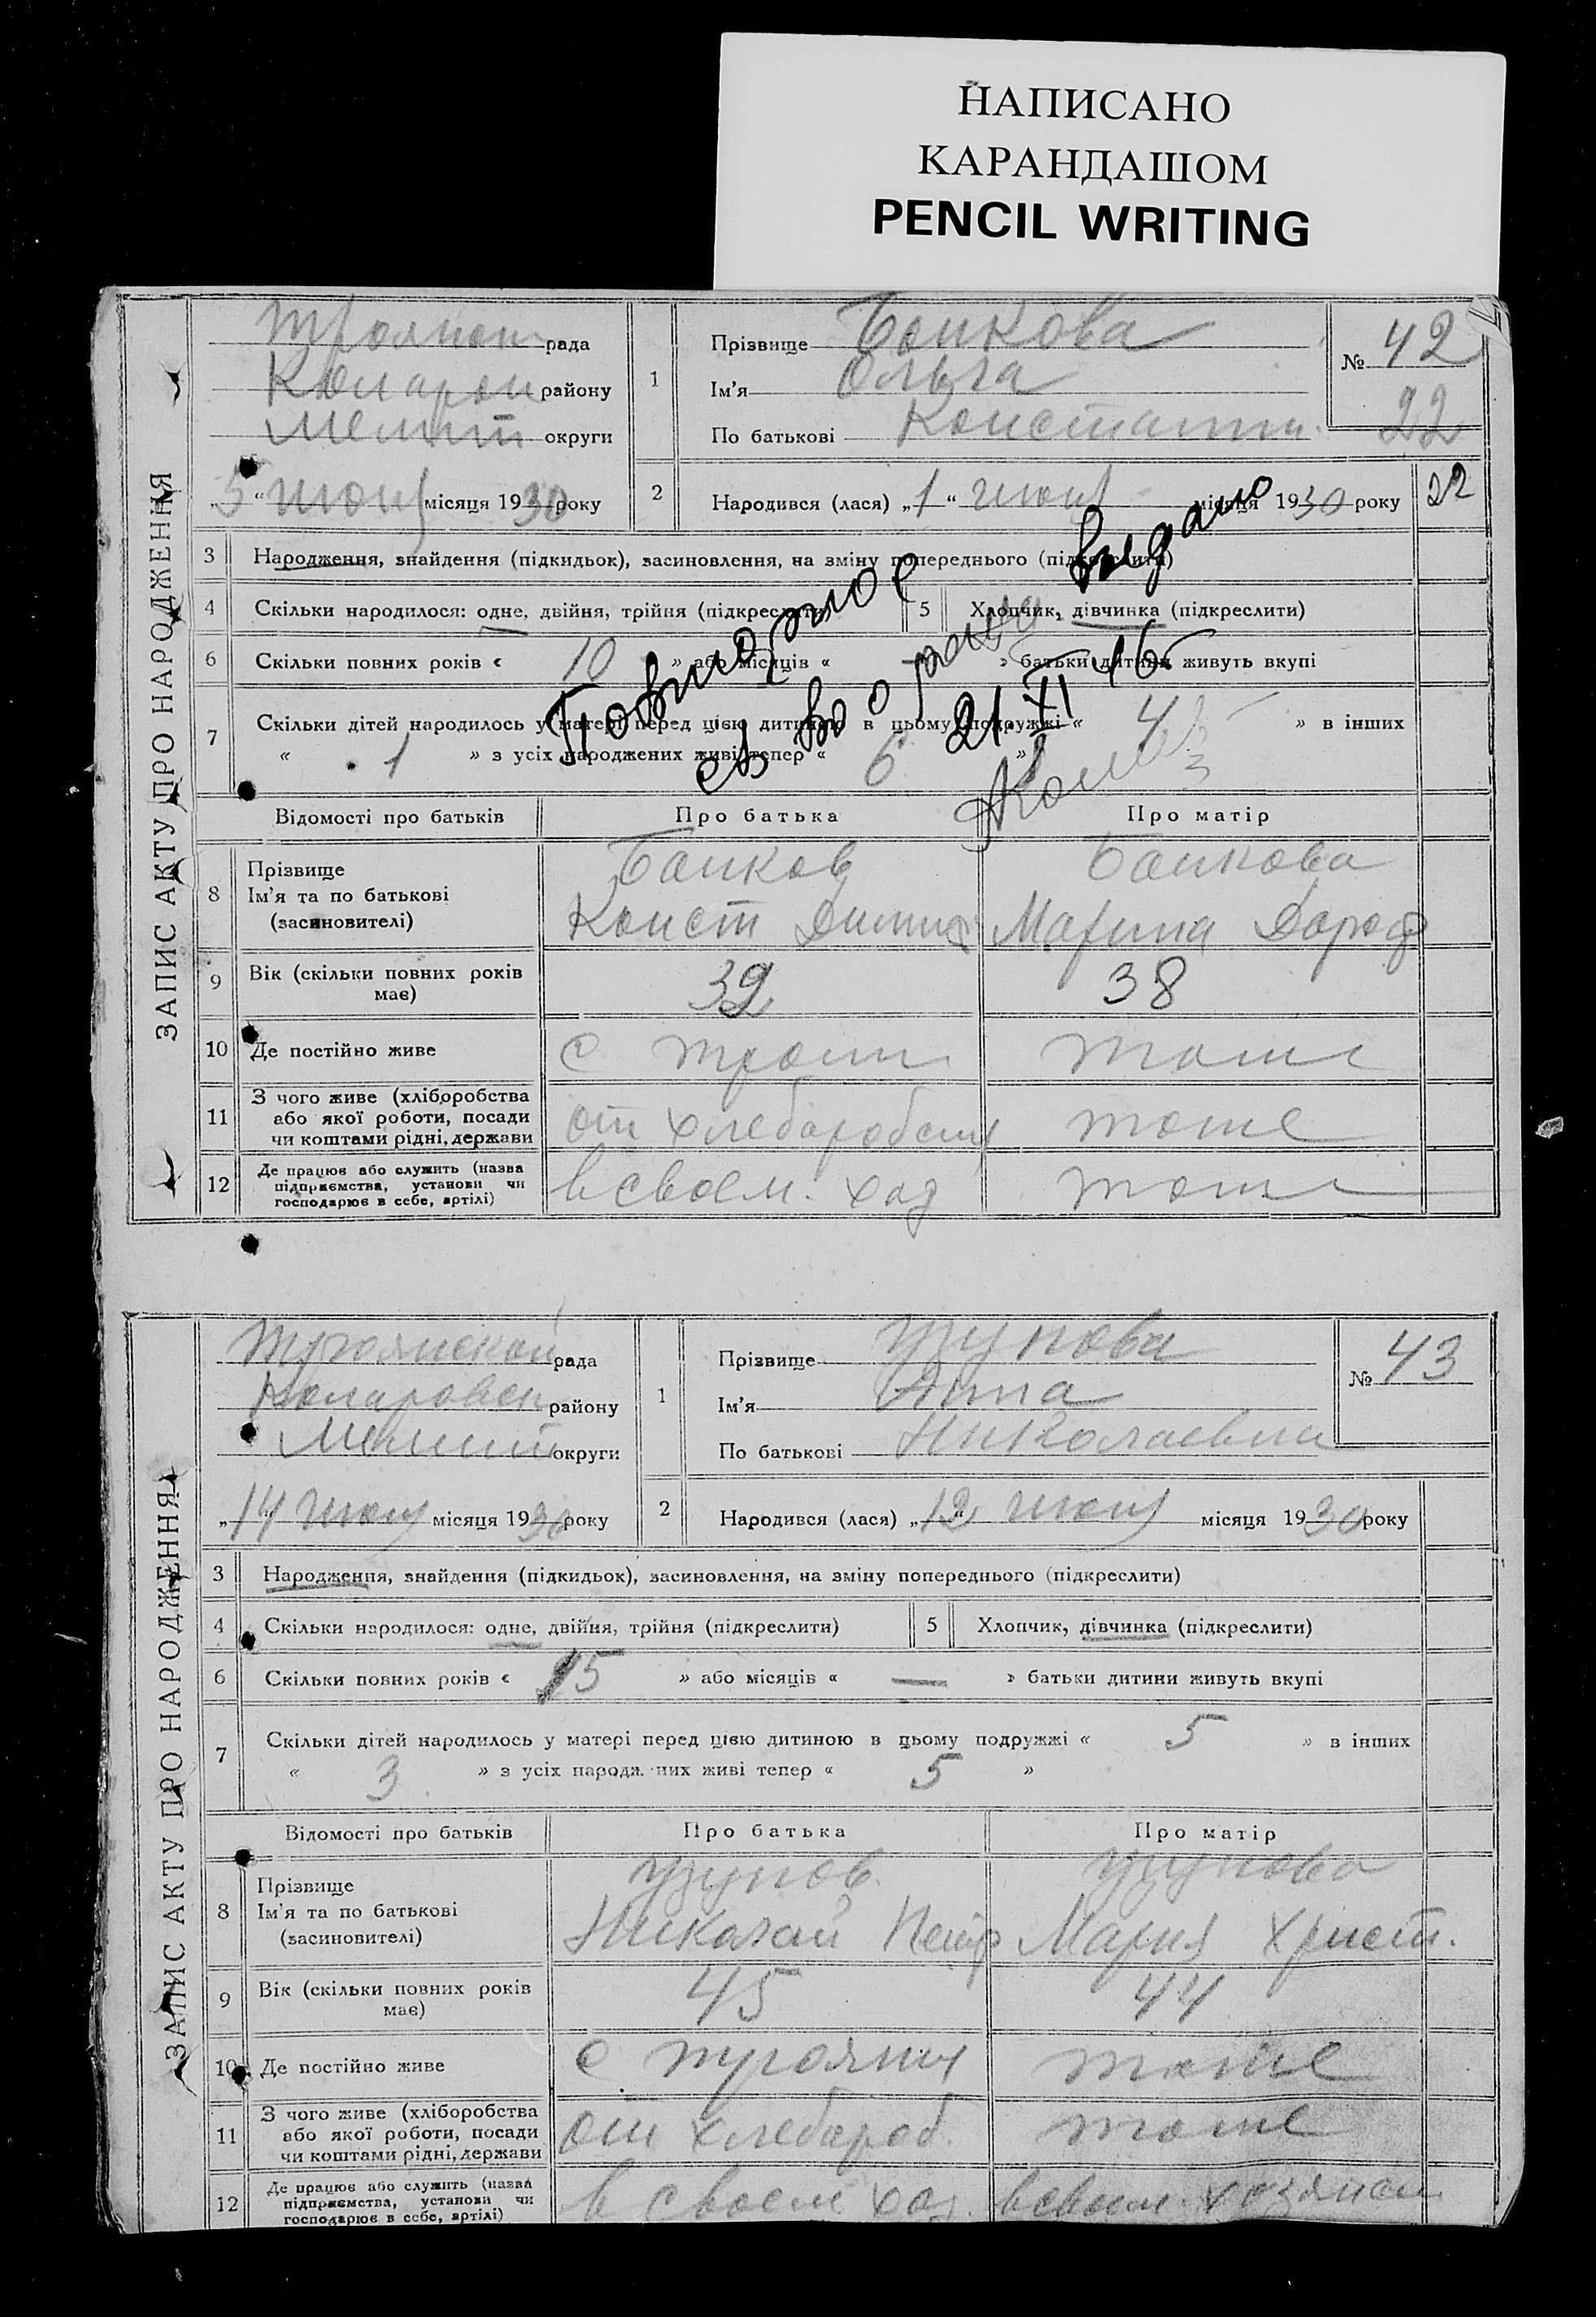 НАПИСАНО
КАРАНДАШОМ
PENCIL WRITING
ЗАПИС АКТУ ПРО НАРОДЖЕННЯ
Троянск рада
района
Мелит округи
„5“ июня місяця 1930 року
1
Прізвище
Ім'я Ольга
По батькові Константин.
№ 42
22
2
Народився (лася) „1“ июня місяця 1930 року
22
3 Народження, знайдення (підкидьок), засиновлення, на зміну попереднього (підкреслити)
4 Скільки народилося: одне, двійня, трійня (підкреслити) 5 Хлопчик, дівчинка (підкреслити)
6 Скільки повних років « 10 » або місяців « » батьки дитини живуть вкупі
7 Скільки дітей народилось у матері перед цією дитиною в цьому подружжі « 4 » в інших
« 1 » з усіх народжених живі тепер « 6 »
Повторное выдано
св во о рожд
21.XI 46
Відомості про батьків Про батька Про матір
8 Прізвище
Ім'я та по батькові
(засиновителі)
Конст Дмит Марина Дороф
9 Вік (скільки повних років має) 39 38
10 Де постійно живе с Троян тоже
11 З чого живе (хліборобства
або якої роботи, посади
чи коштами рідні, держави
от хлебаробства тоже
12 Де працює або служить (назва
підприємства, установи чи
господарює в себе, артілі)
в своем. хоз тоже
ЗАПИС АКТУ ПРО НАРОДЖЕННЯ
Троянской рада
района
Мелит округи
„14“ июня місяця 1930 року
1
Прізвище Узунова
Ім'я Анна
По батькові Николаевна
№ 43
2
Народився (лася) „12“ июня місяця 1930 року
3 Народження, знайдення (підкидьок), засиновлення, на зміну попереднього (підкреслити)
4 Скільки народилося: одне, двійня, трійня (підкреслити) 5 Хлопчик, дівчинка (підкреслити)
6 Скільки повних років « 15 » або місяців « — » батьки дитини живуть вкупі
7 Скільки дітей народилось у матері перед цією дитиною в цьому подружжі « 5 » в інших
« 3 » з усіх народжених живі тепер « 5 »
Відомості про батьків Про батька Про матір
8 Прізвище
Ім'я та по батькові
(засиновителі)
Узунов Узунова
Николай Петр Мария Христ.
9 Вік (скільки повних років має) 45 44
10 Де постійно живе с Трояны тоже
11 З чого живе (хліборобства
або якої роботи, посади
чи коштами рідні, держави
от хлебароб. тоже
12 Де працює або служить (назва
підприємства, установи чи
господарює в себе, артілі)
в своем хоз. в своем хозяйст